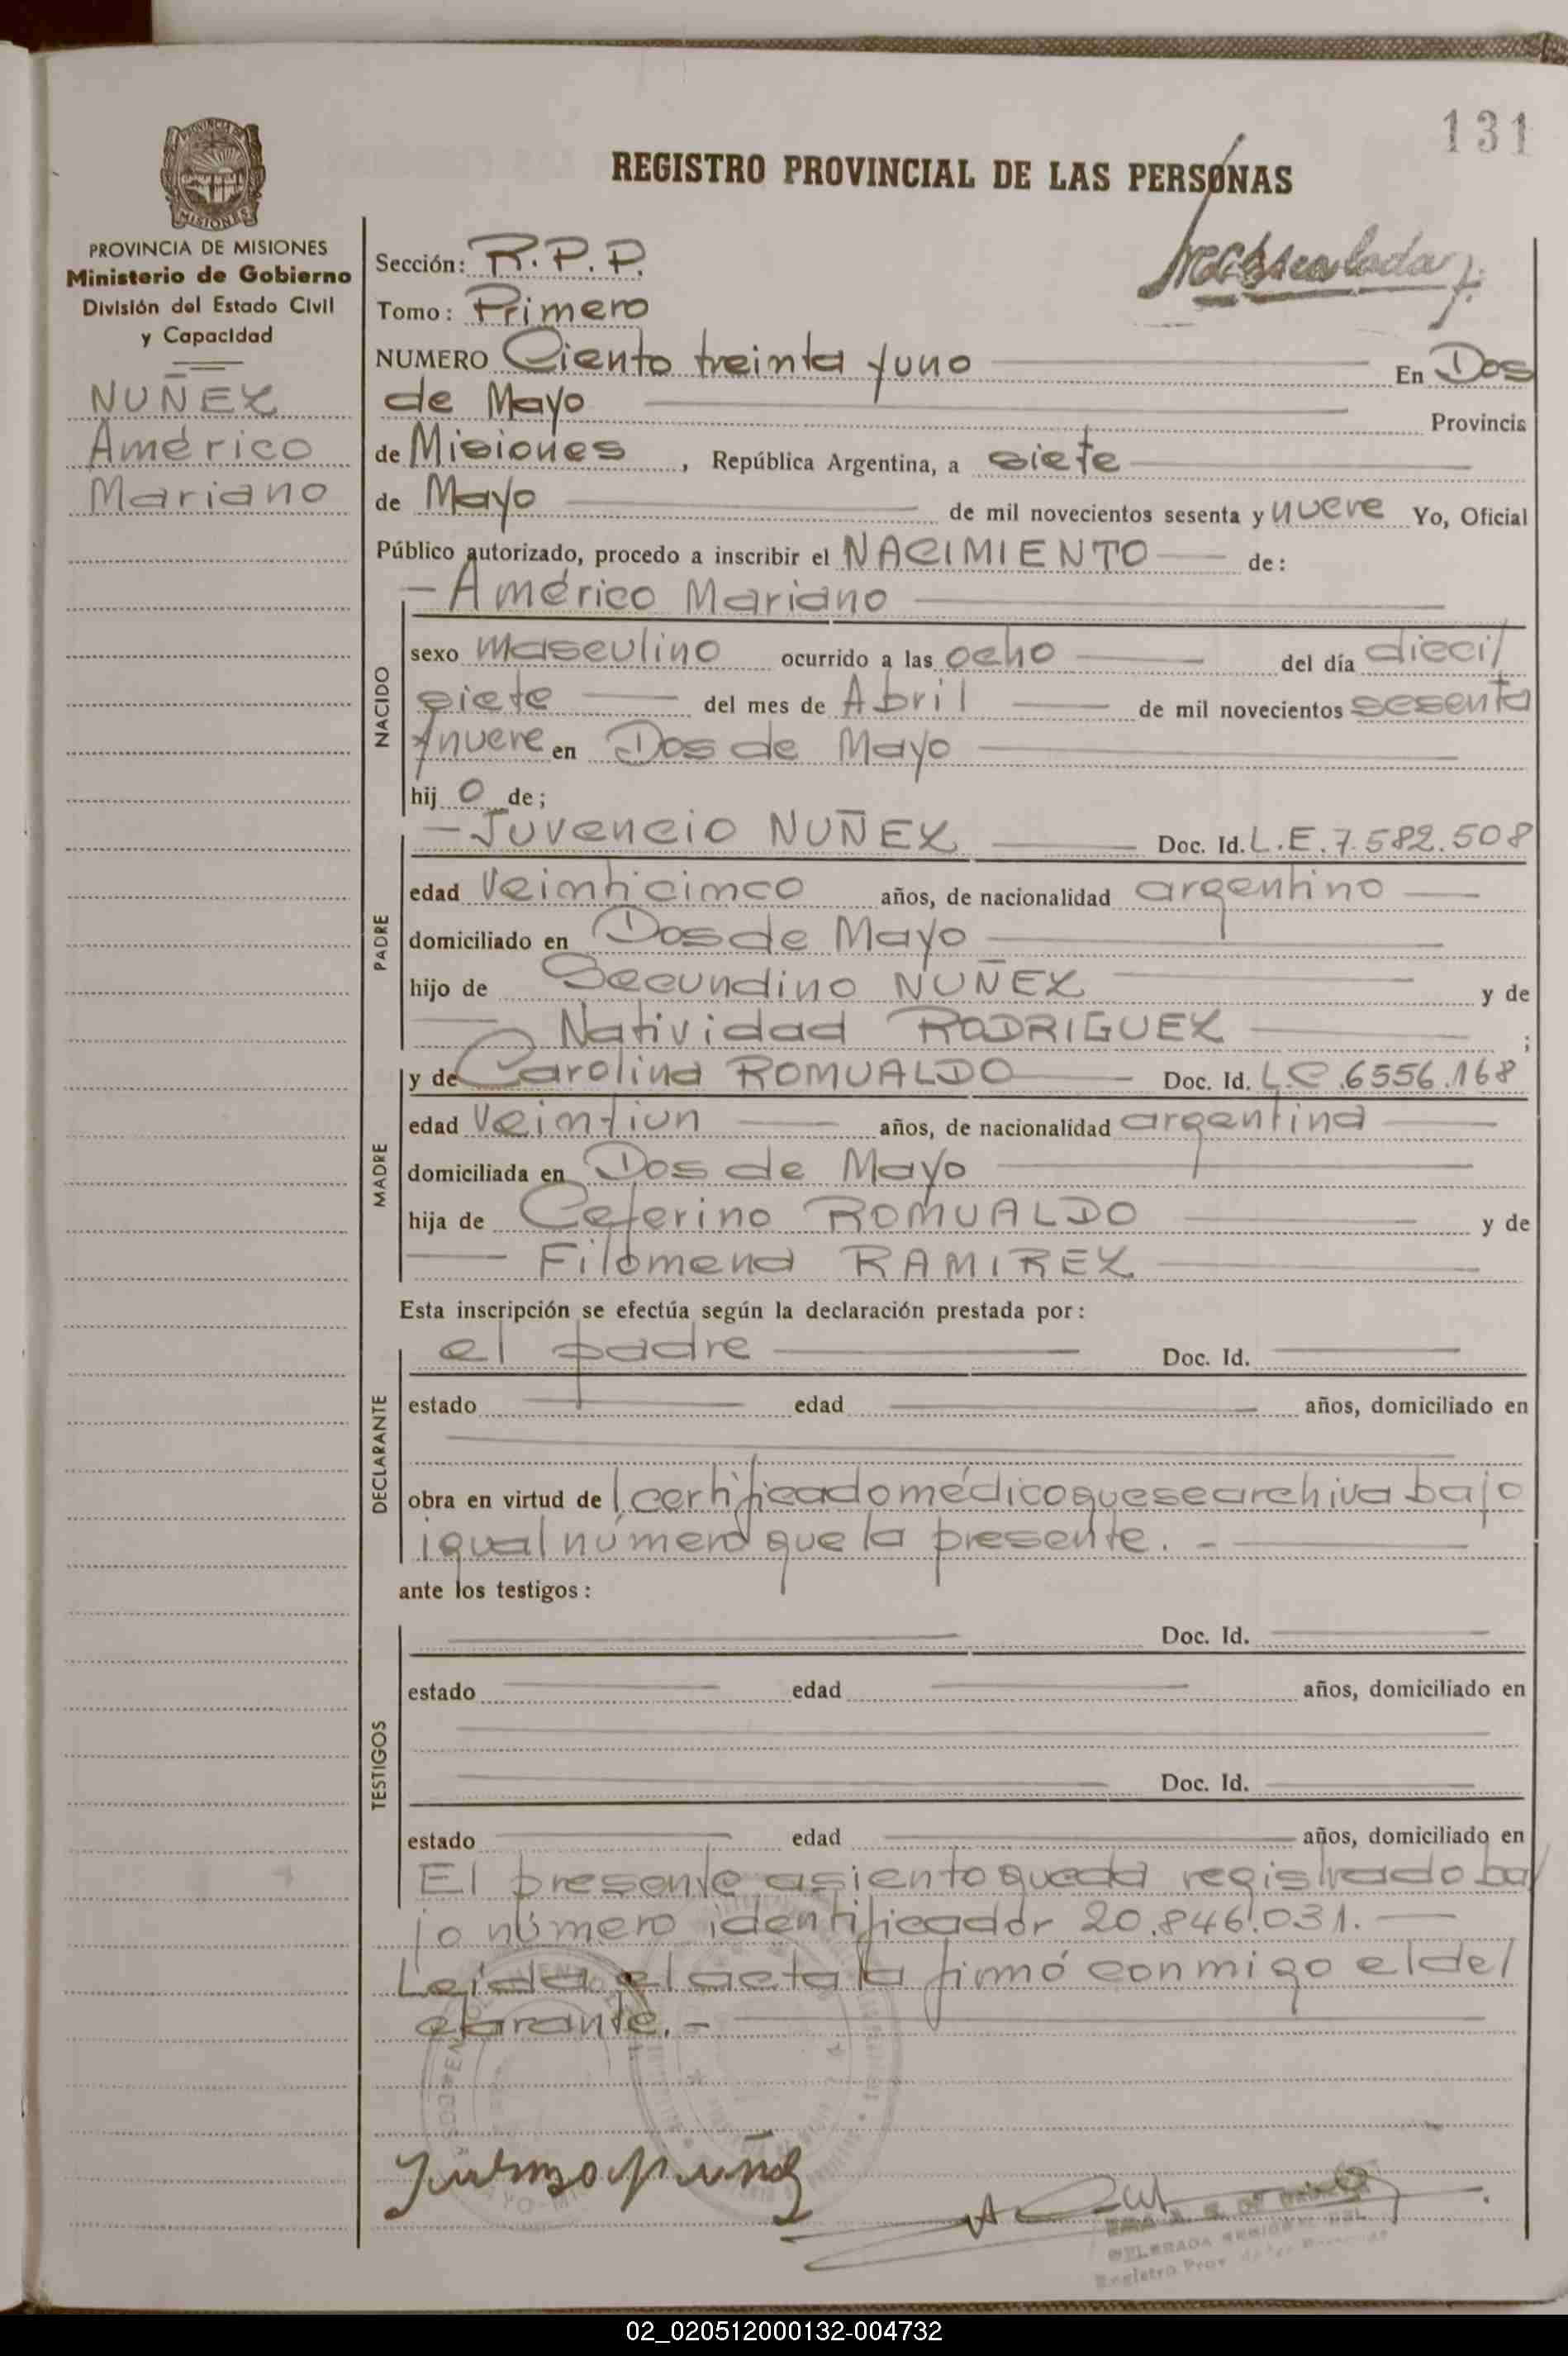 131
REGISTRO PROVINCIAL DE LAS PERSONAS
PROVINCIA DE MISIONES
Ministerio de Gobierno
División del Estado Civil
y Capacidad
NUÑEZ
Américo
Mariano
Sección: R.P.P.
Tomo: Primero
NUMERO Ciento treinta y uno En Dos
de Mayo Provincia
de Misiones, República Argentina, a siete
de Mayo de mil novecientos sesenta y nueve Yo, Oficial
Público autorizado, procedo a inscribir el NACIMIENTO de:
- Américo Mariano
NACIDO
sexo masculino ocurrido a las ocho del día dieci/
siete del mes de Abril de mil novecientos sesenta
y nueve en Dos de Mayo
hij o de;
PADRE
- Juvencio NUÑEZ Doc. Id. L.E. 7.582.508
edad Veinticinco años, de nacionalidad argentino
domiciliado en Dos de Mayo
hijo de Secundino NUÑEZ y de
Natividad RODRIGUEZ ;
MADRE
y de Carolina ROMUALDO Doc. Id. L.C. 6556.168
edad Veintiun años, de nacionalidad argentina
domiciliada en Dos de Mayo
hija de Ceferino ROMUALDO y de
Filomena RAMIREZ
Esta inscripción se efectúa según la declaración prestada por:
DECLARANTE
el padre Doc. Id.
estado edad años, domiciliado en
obra en virtud de l certificado médico que se archiva bajo
igual número que la presente. -
ante los testigos:
TESTIGOS
Doc. Id.
estado edad años, domiciliado en
Doc. Id.
estado edad años, domiciliado en
El presente asiento queda registrado ba/
jo número identificador 20.846.031. -
Leida el acta la firmó conmigo el de/
clarante. -
02_020512000132-004732